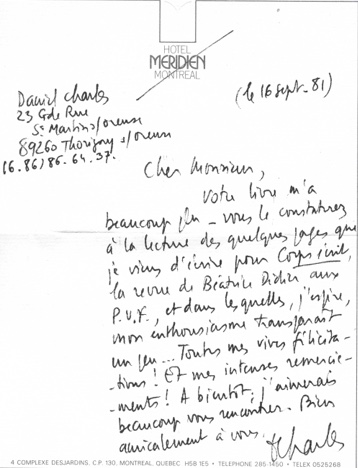 HOTEL
MERIDIEN
MONTREAL
Daniel Charles
23 Gde Rue
St Martin s/oreuse
89260 Thorigny s/oreuse
(6.86) 86.64.37.
(le 16 Sept. 81)
Cher Monsieur,
Votre livre m'a
beaucoup plu – vous le constaterez
à la lecture des quelques pages que
je viens d'écrire pour Corps écrit,
la revue de Béatrice Didier aux
P.U.F., et dans lesquelles, j'espère,
mon enthousiasme transparaît
un peu... Toutes mes vives félicita-
tions ! Et mes intenses remercie-
ments ! A bientôt ; j'aimerais
beaucoup vous rencontrer. Bien
amicalement à vous,
DCharles
4 COMPLEXE DESJARDINS, C.P. 130, MONTREAL, QUEBEC H5B 1E5 • TELEPHONE 285-1450 • TELEX 0525268